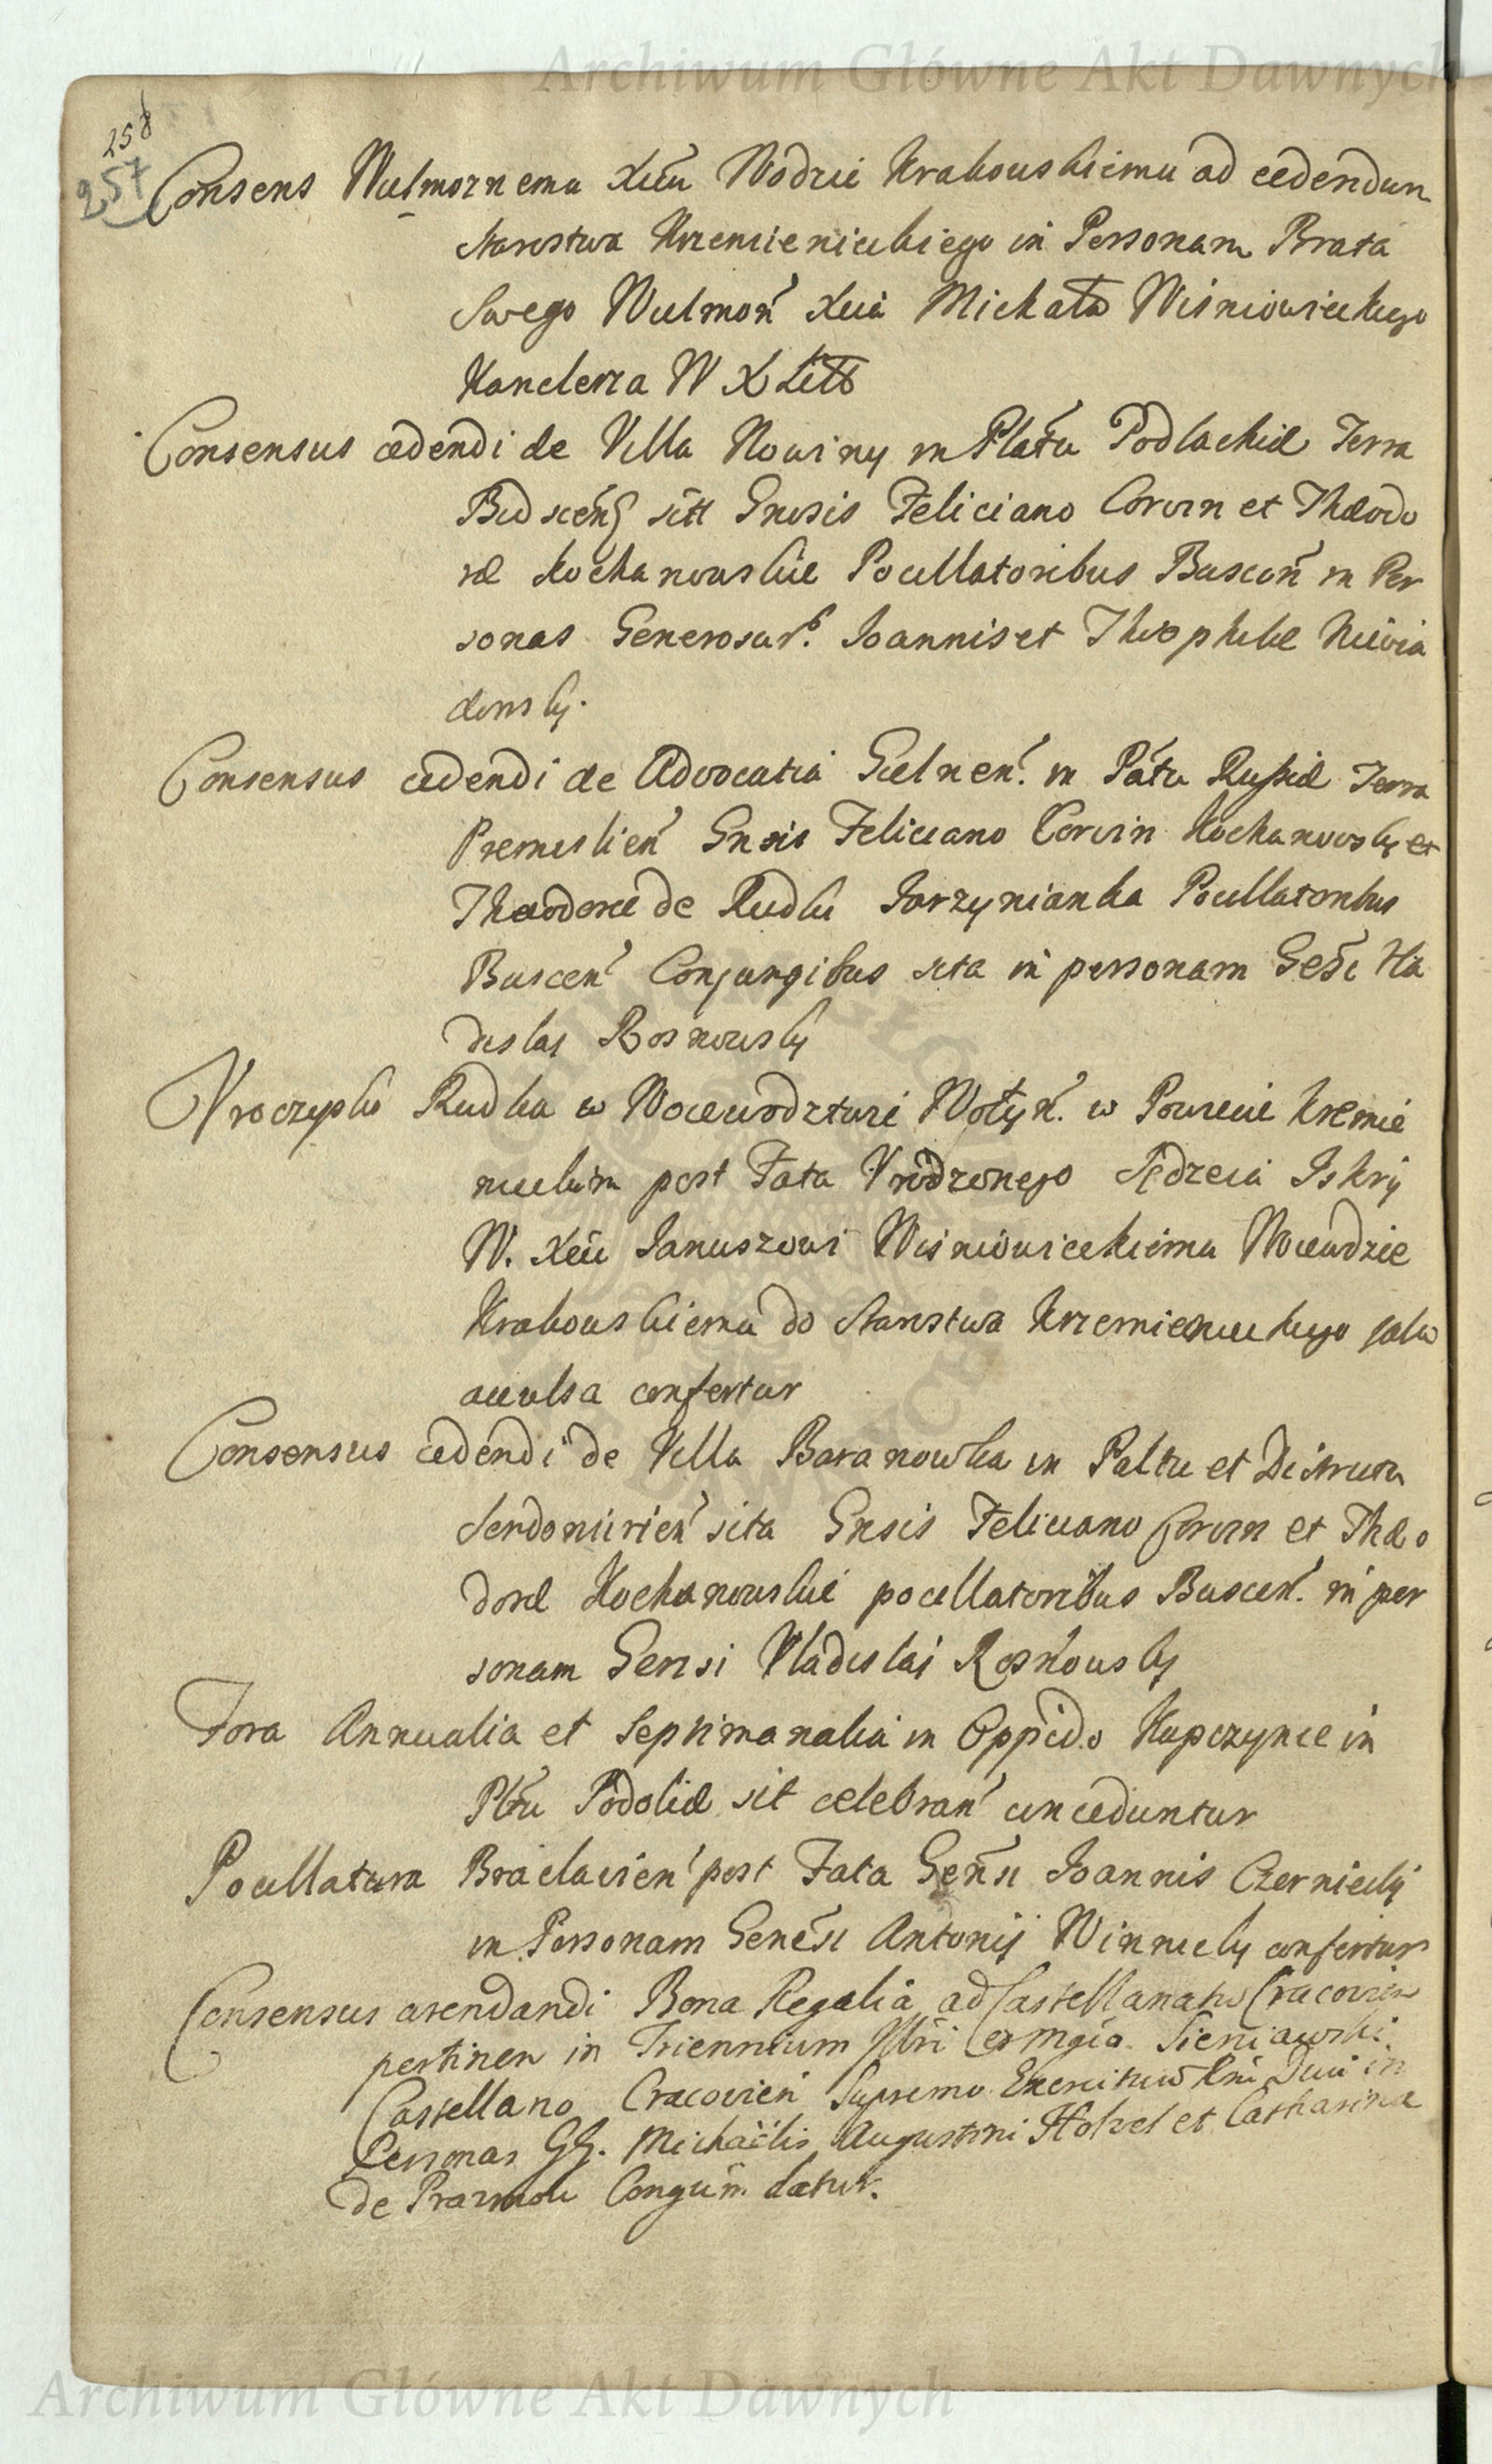 Archiwum Główne Akt Dawnych
258
257
Consens Wielmoznemu Xciu Wodzie Krakowskiemu ad cedendum
Starostwa Krzemienieckiego in Personam Brata
Swego Wielmoń Xcia Michała Wisniowieckiego
Kanclerza W X Litt
Consensus cedendi de Villa Nowiny in Platu Podlachiæ Terra
sitt Gnosis Feliciano Corvin et Theodo
ræ Kochanowskie Pocillatoribus Buscen in Per
sonas Generosar. Joannis et Theophilæ Niewia
domsky.
Consensus cedendi de Advocatia in Patu Russiæ Terra
Premislien Gnsis Feliciano Corvin Kochanowsky et
Theodoræ de Rudki Jarzynianka Pocillatoribus
Buscen Conjungibus sita in personam Gesi Vla
dislai Rosnowsky
Vroczysko Rudka w Woiewodztwie Wołyń. w Powiecie Kremie
nieckim post Fata Vrodzonego Sędzeia Iskry
W. Xciu Januszowi Wisniowieckiemu Woiewodzie
Krakowskiemu do Starostwa Krzemienieckiego jako
avulsa confertur
Consensus cedendi de Villa Baranowka in Paltu et Districtu
Sendomirien sita Gnsis Feliciano Corvin et Theo
doræ Kochanowskie pocillatoribus Buscen. in per
sonam Gensi Vladislai Rosnowsky
Fora Annualia et Septimanalia in Oppido Kupczynce in
Pltu Podoliæ sit celebran conceduntur
Pocillatura Braclavien post Fata Gensi Joannis Czerniecky
in Personam Genesi Antonij Winnicky confertur
Consensus arendandi Bona Regalia ad Castellanatu Cracovien
pertinen in Triennium Illri et Mgia Sieniawski
Castellano Cracovien Supremo Exercituu Rni Duci in
Personas GG. Michaëlis Augustini Holzel et Catharinæ
de Prazmow Congum datur.
Archiwum Główne Akt Dawnych